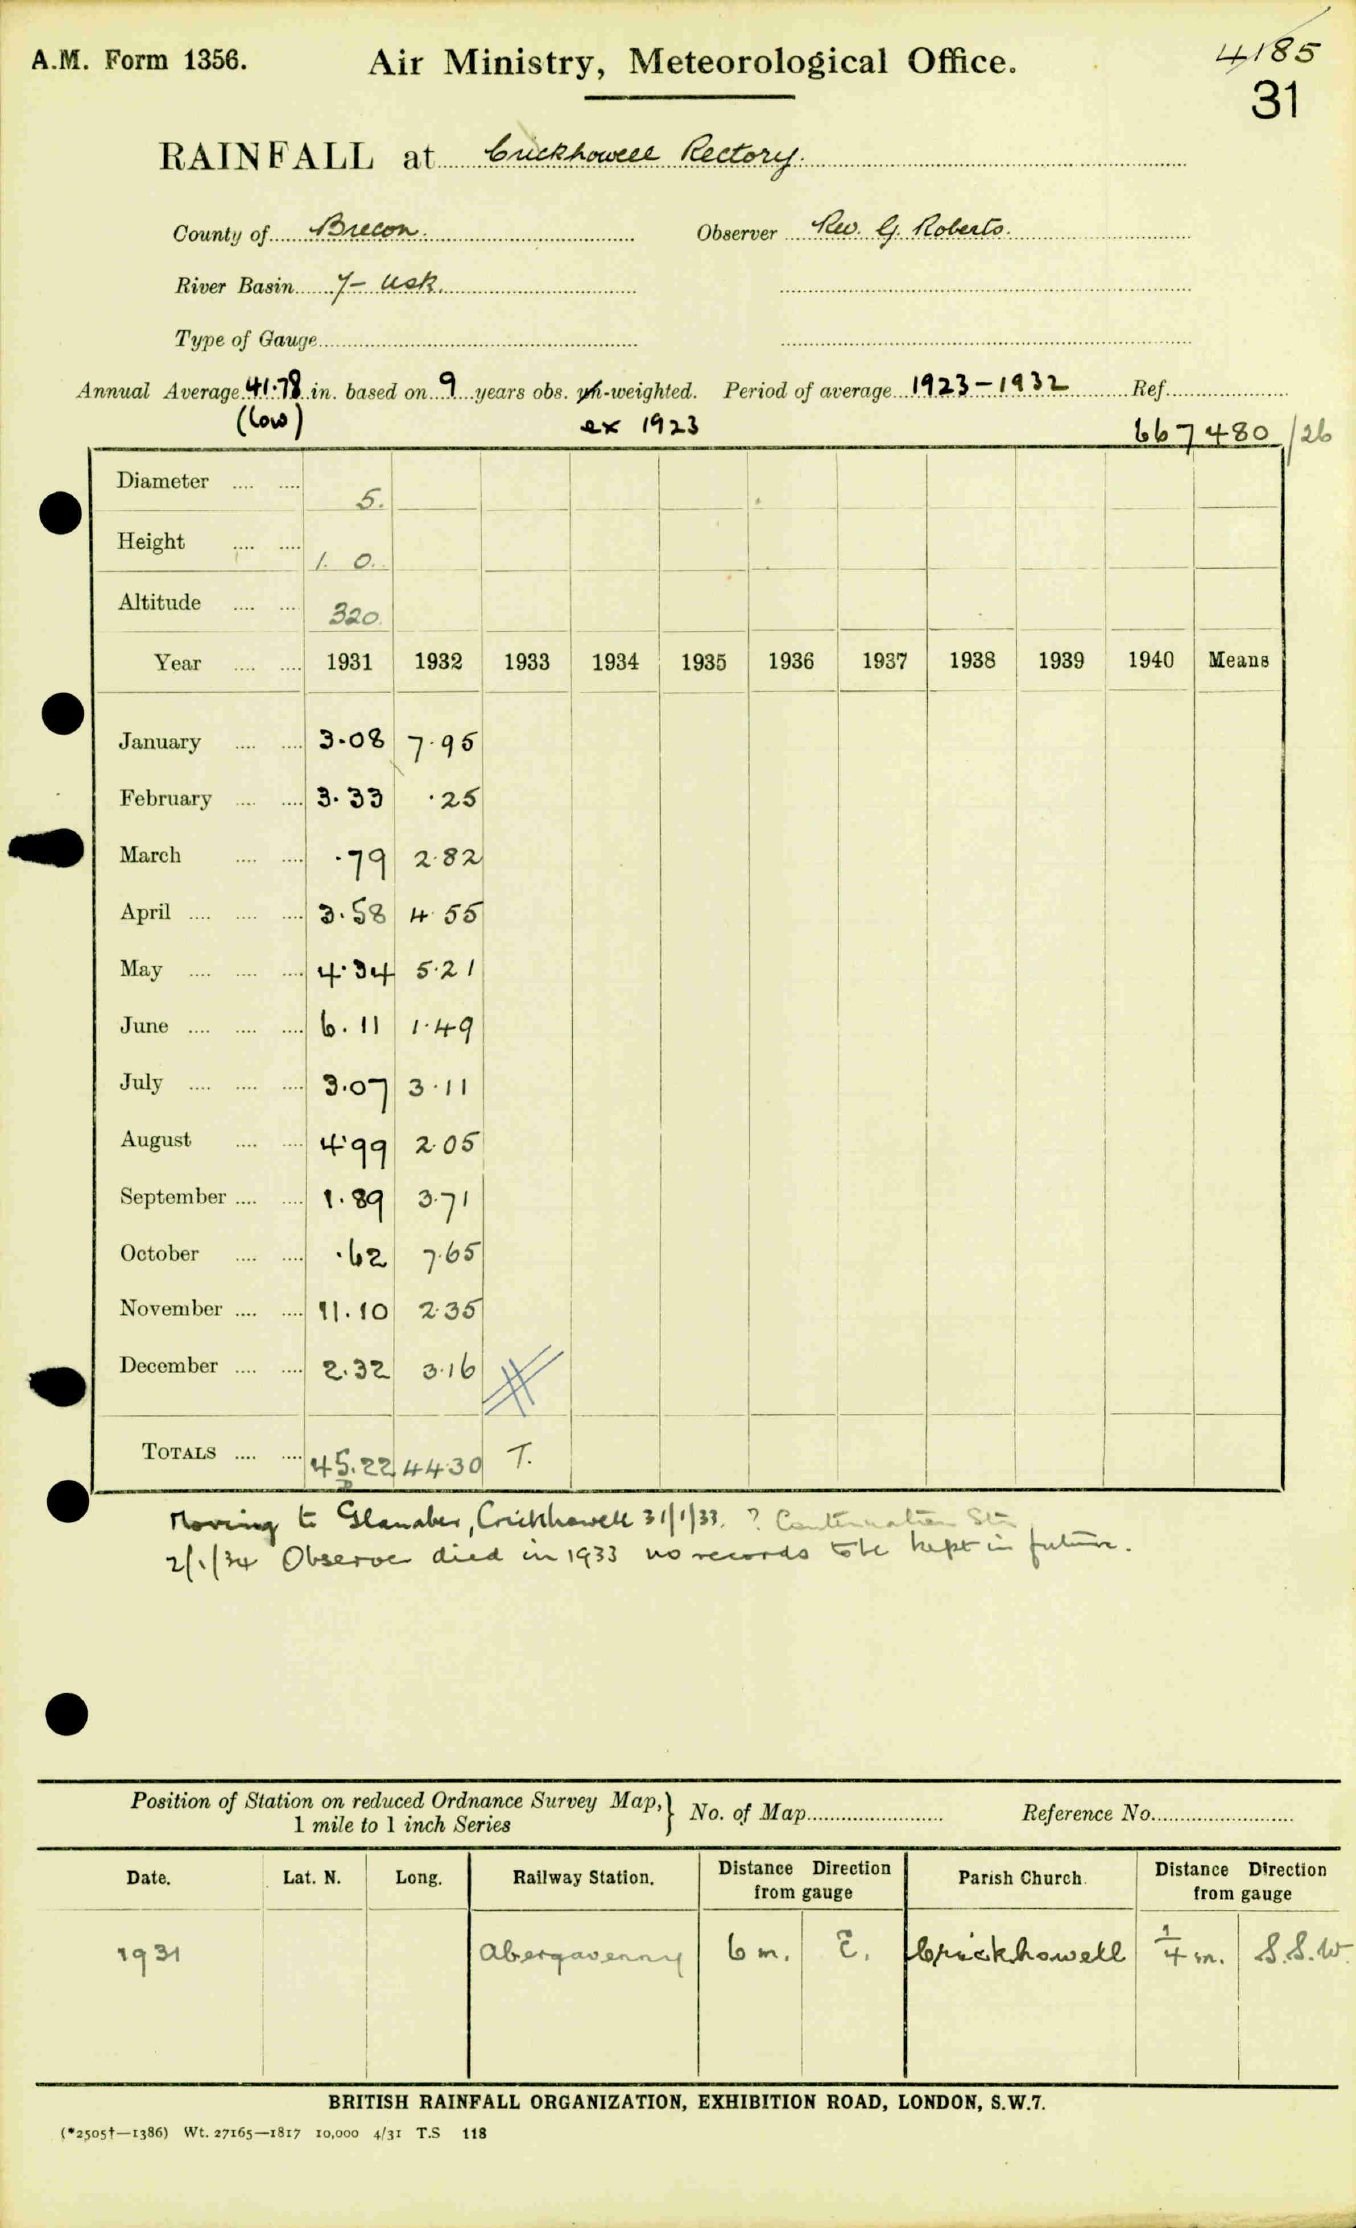 A.M. Form 1356.
Air Ministry, Meteorological Office.
4185
31
RAINFALL at Crickhowell Rectory.
County of Brecon. Observer Rev. G. Roberts.
River Basin 7- Usk.
Type of Gauge
Annual Average 41.78 in. based on 9 years obs. un-weighted. Period of average 1923-1932 Ref.
(low) ex 1923 667480 /26
Diameter .... .... 5.
Height .... .... 1. 0.
Altitude .... .... 320
Year .... .... 1931 1932 1933 1934 1935 1936 1937 1938 1939 1940 Means
January .... .... 3.08 7.95
February .... .... 3.33 .25
March .... .... .79 2.82
April .... .... .... 3.58 4.55
May .... .... .... 4.34 5.21
June .... .... .... 6.11 1.49
July .... .... .... 3.07 3.11
August .... .... 4.99 2.05
September .... .... 1.89 3.71
October .... .... .62 7.65
November .... .... 11.10 2.35
December .... .... 2.32 3.16
TOTALS .... .... 45.22 44.30 T.
Moving to Glanaber, Crickhowell 31/1/33. ? Continuation Stn
2/1/34 Observer died in 1933 no records to be kept in future.
Position of Station on reduced Ordnance Survey Map,
1 mile to 1 inch Series
No. of Map Reference No.
Date. Lat. N. Long. Railway Station. Distance Direction from gauge Parish Church. Distance Direction from gauge
1931 Abergavenny 6 m. E. Crickhowell 1/4 m. S.S.W.
BRITISH RAINFALL ORGANIZATION, EXHIBITION ROAD, LONDON, S.W.7.
(*2505†—1386) Wt. 27165—1817 10,000 4/31 T.S 118